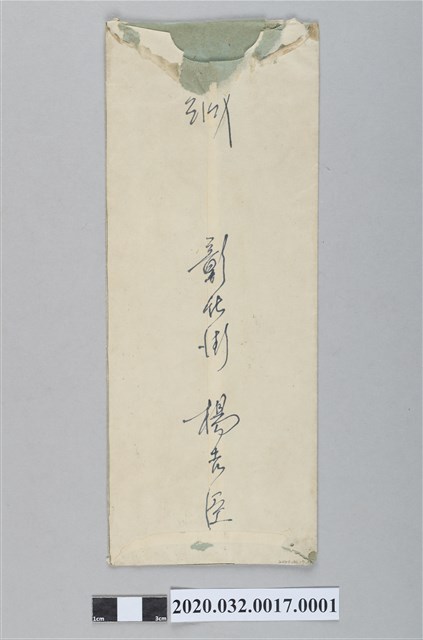 緘
彰化街 楊吉臣
1cm 3cm
2020.032.0017.0001